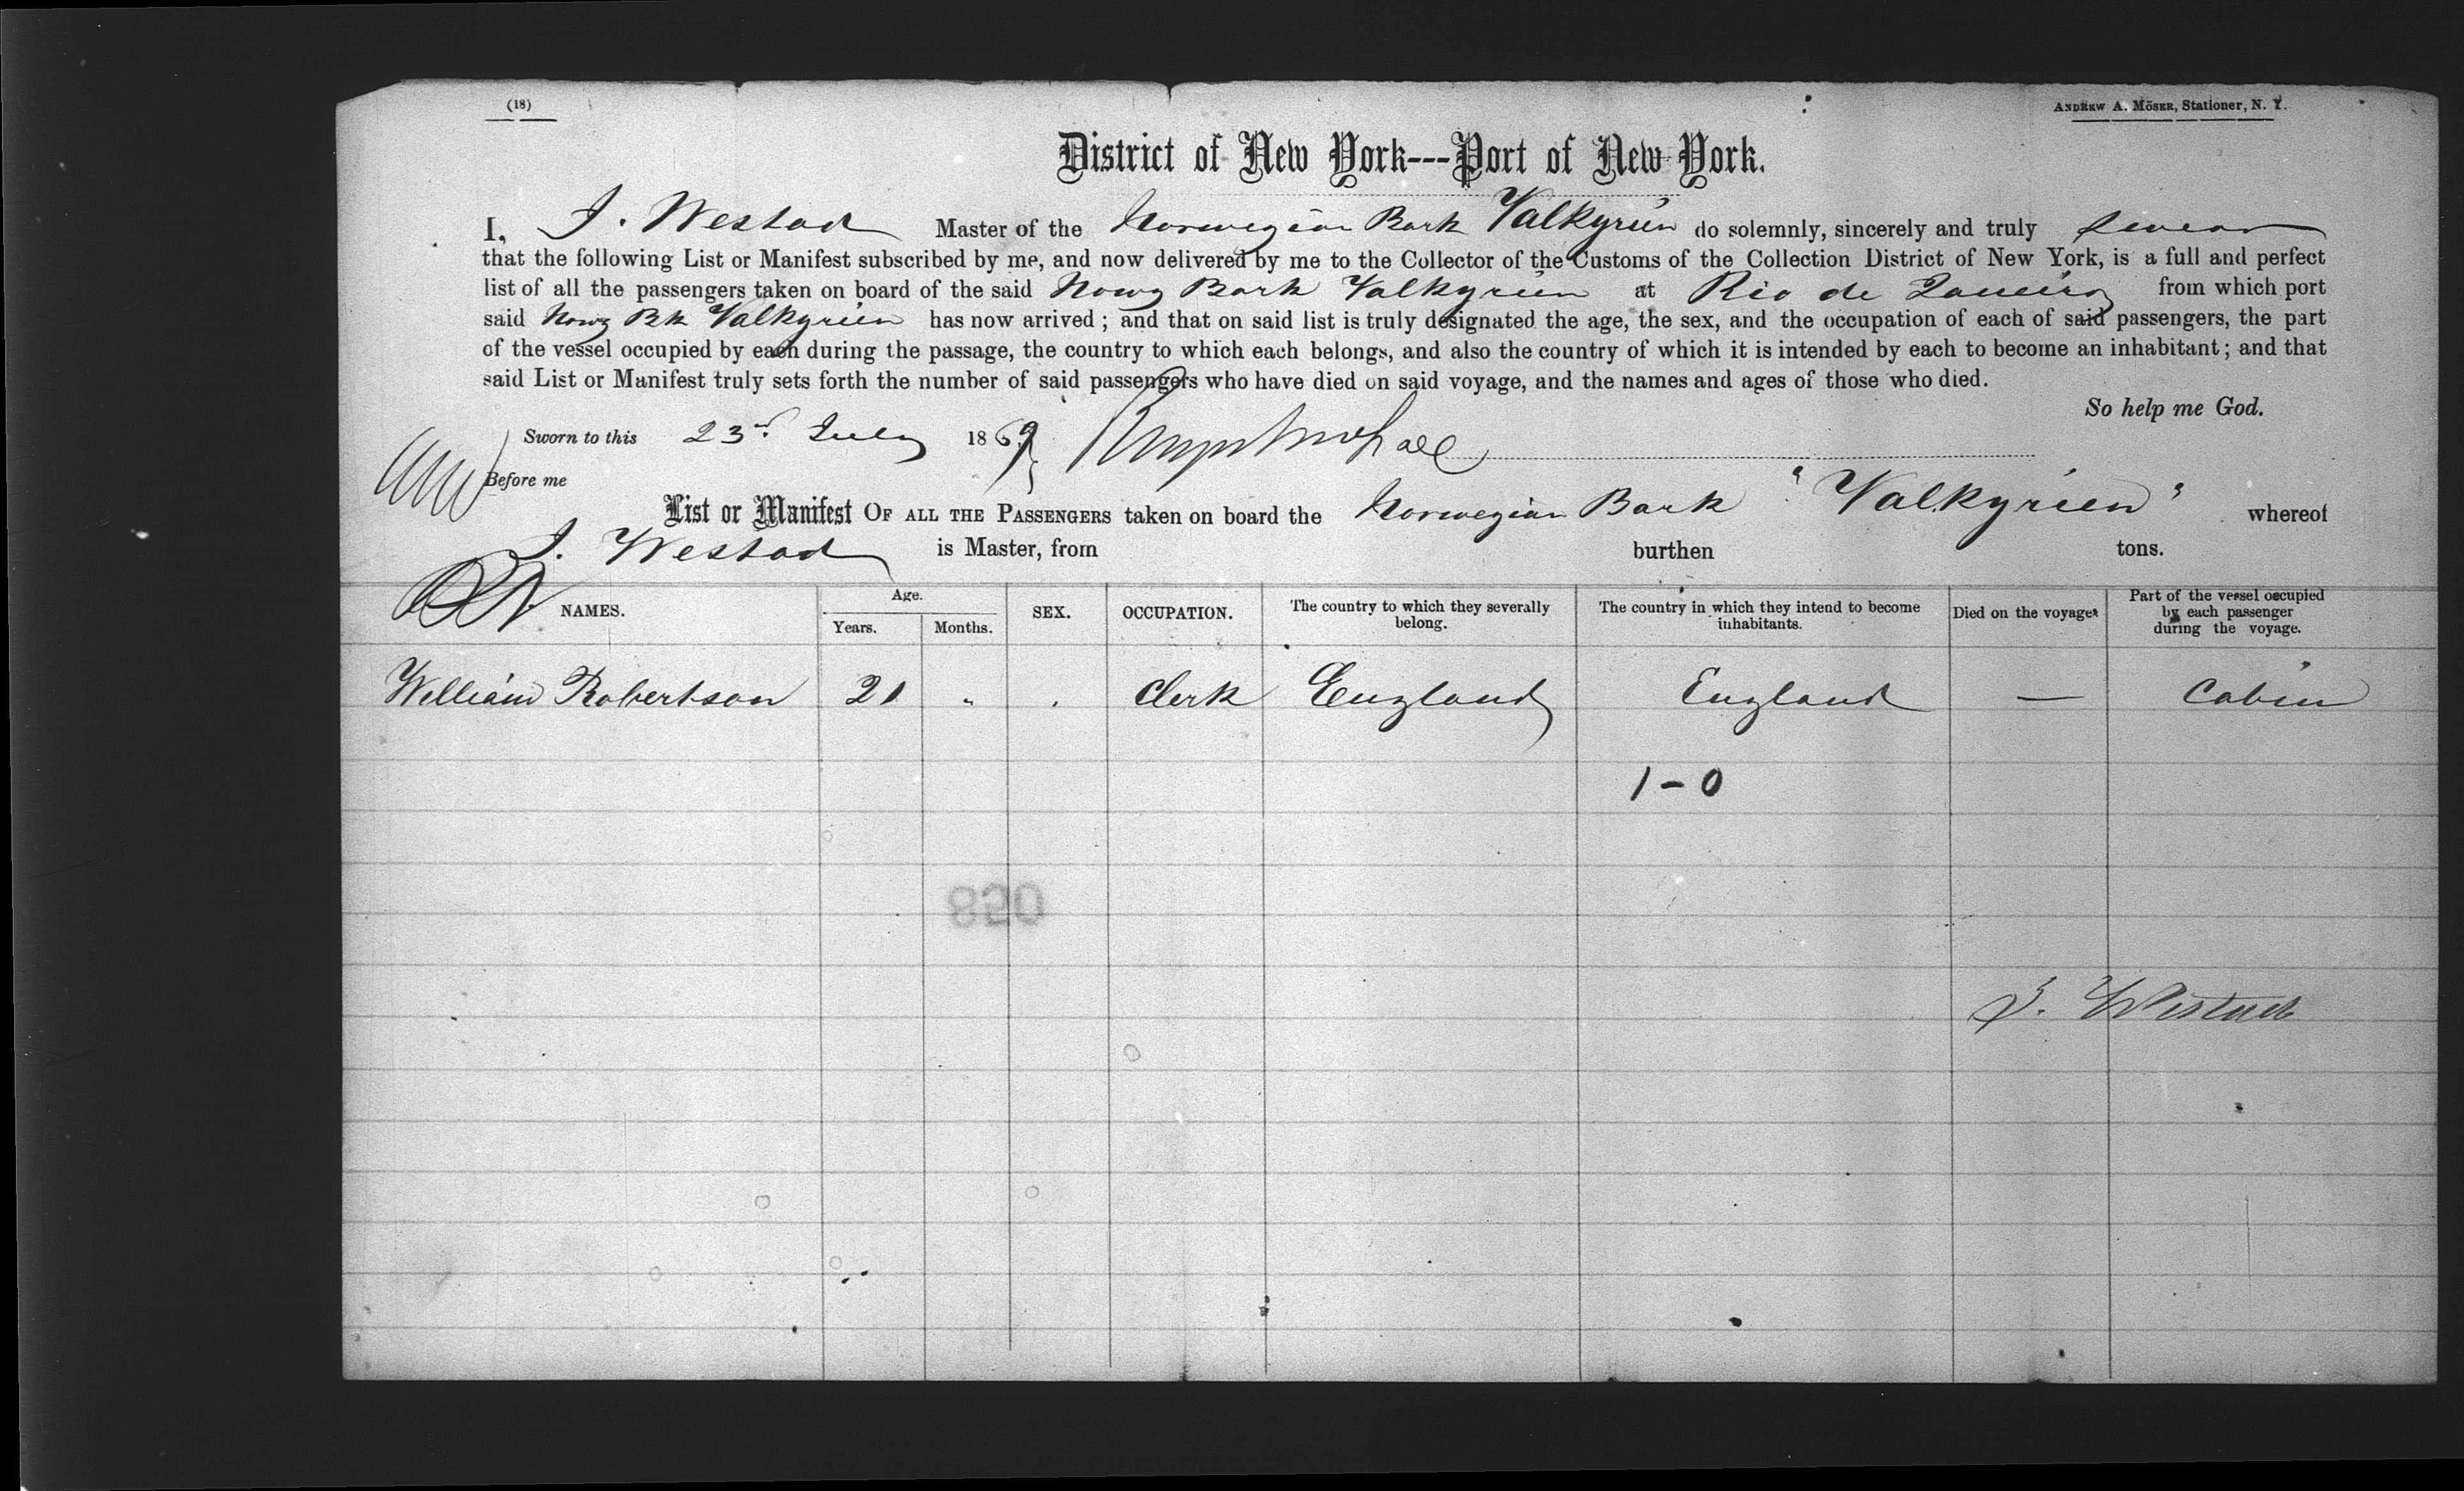 (18)
ANDREW A. MÖSER, Stationer, N. Y.
District of New York---Port of New York.
I, J. Westad Master of the Norwegian Bark Valkyrien do solemnly, sincerely and truly swear
that the following List or Manifest subscribed by me, and now delivered by me to the Collector of the Customs of the Collection District of New York, is a full and perfect
list of all the passengers taken on board of the said Norwg Bark Valkyrien at Rio de Janeiro from which port
said Norwg Bk Valkyrien has now arrived; and that on said list is truly designated the age, the sex, and the occupation of each of said passengers, the part
of the vessel occupied by each during the passage, the country to which each belongs, and also the country of which it is intended by each to become an inhabitant; and that
said List or Manifest truly sets forth the number of said passengers who have died on said voyage, and the names and ages of those who died.
So help me God.
Sworn to this 23rd July 1869
Before me
List or Manifest OF ALL THE PASSENGERS taken on board the Norwegian Bark "Valkyrien" whereof
J. Westad is Master, from burthen tons.
NAMES. Age. Years. Months. SEX. OCCUPATION. The country to which they severally belong. The country in which they intend to become inhabitants. Died on the voyage. Part of the vessel occupied by each passenger during the voyage.
William Robertson 21 " . Clerk England England — Cabin
1 - 0
J. Westad